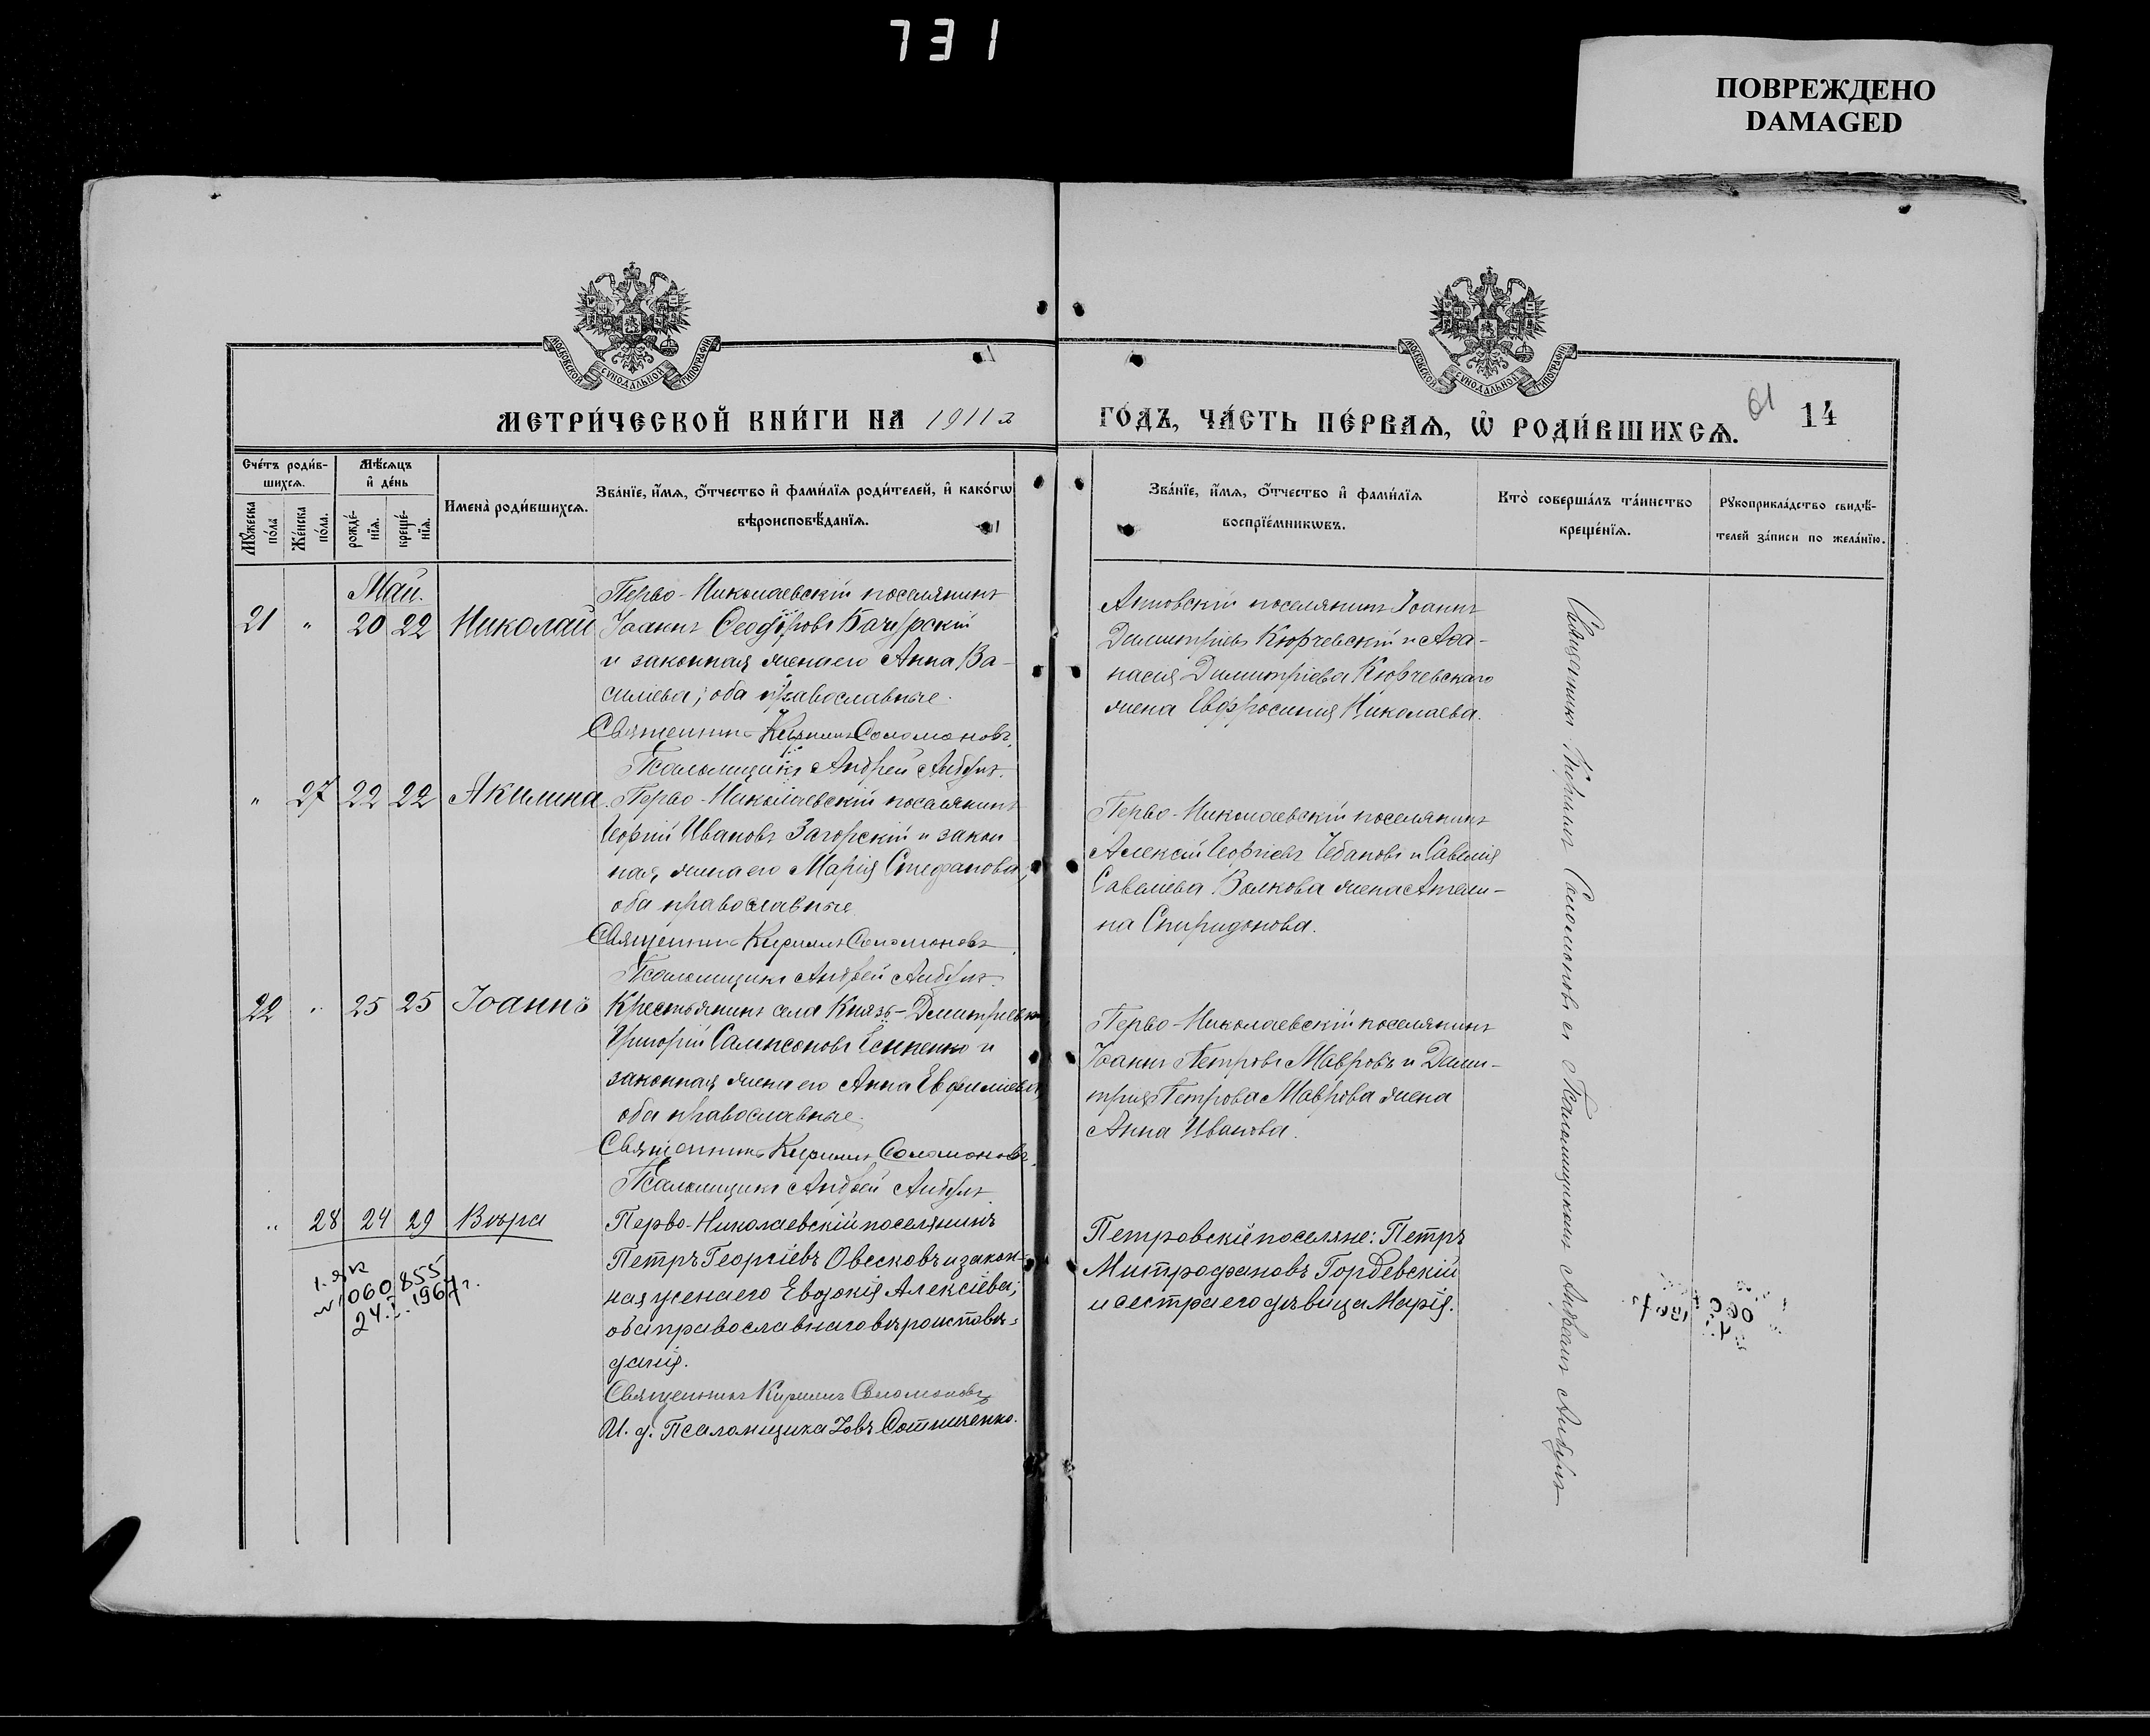 731
ПОВРЕЖДЕНО
DAMAGED
МОСКОВСКОЙ СѴНОДАЛЬНОЙ ТИПОГРАФІИ
МОСКОВСКОЙ СѴНОДАЛЬНОЙ ТИПОГРАФІИ
МЕТРИ́ЧЕСКОЙ КНИ́ГИ НА 1911 г
ГО́ДЪ, ЧА́СТЬ ПЕ́РВАѦ, Ѡ РОДИ́ВШИХСѦ.
61 14
Сче́тъ роди́в-
шихсѧ.
Мꙋ́жеска
по́ла
Же́нска
по́ла.
Мѣ́сѧцъ
и҆ де́нь
рожде́-
нїѧ.
креще́-
нїѧ.
И҆мена̀ роди́вшихсѧ.
Зва́нїе, и҆́мѧ, ѻ҆́тчество и҆ фами́лїѧ роди́телей, и҆ како́гѡ
вѣроисповѣ́данїѧ.
Зва́нїе, и҆́мѧ, ѻ҆́тчество и҆ фами́лїѧ
воспрїе́мникѡвъ.
Кто̀ соверша́лъ та́инство
креще́нїѧ.
Рꙋкоприкла́дство свидѣ́-
телей за́писи по жела́нїю.
Май.
21 " 20 22 Николай
Перво-Николаевскій поселянинъ
Іоаннъ Ѳеодоровъ
и законная жена его Анна Ва-
силіева; оба православные.
Священникъ Кириллъ Соломоновъ.
Псаломщикъ Андрей
поселянинъ Іоаннъ
Димитріевъ Кюрчевскій и Аѳа-
насія Димитріева Кюрчевскаго
жена Евфросинія Николаева.
" 27 22 22 Акилина.
Перво-Николаевскій поселянинъ
Георгій Ивановъ Загорскій и закон
ная жена его Марія Стефанова,
оба православные
Священникъ Кириллъ Соломоновъ
Псаломщикъ Андрей
Перво-Николаевскій поселянинъ
Алексій Георгіевъ Чебановъ и Савелія
Савеліева Волкова жена Ангели-
на Спиридонова.
22 " 25 25 Іоаннъ
Крестьянинъ села Князь-Димитріевки
Григорій Сампсоновъ и
законная жена его Анна Евфиміева,
оба православные.
Священникъ Кириллъ Соломоновъ.
Псаломщикъ Андрей
Перво-Николаевскій поселянинъ
Іоаннъ Петровъ Мавровъ и Дими-
трія Петрова Маврова жена
Анна Иванова.
" 28 24 29 Вѣра
Перво-Николаевскій поселянинъ
Петръ Георгіевъ Овесковъ и закон-
ная жена его Евдокія Алексіева;
оба православнаго вѣроисповѣ-
данія.
Священникъ Кириллъ Соломоновъ
И. д. Псаломщика Іовъ Сотниченко.
Петровскіе поселяне: Петръ
Митрофановъ Гордевскій
и сестра его дѣвица Марія.
№ 060855
24.I.1967г.
Священникъ Кириллъ Соломоновъ съ Псаломщикомъ Андреемъ